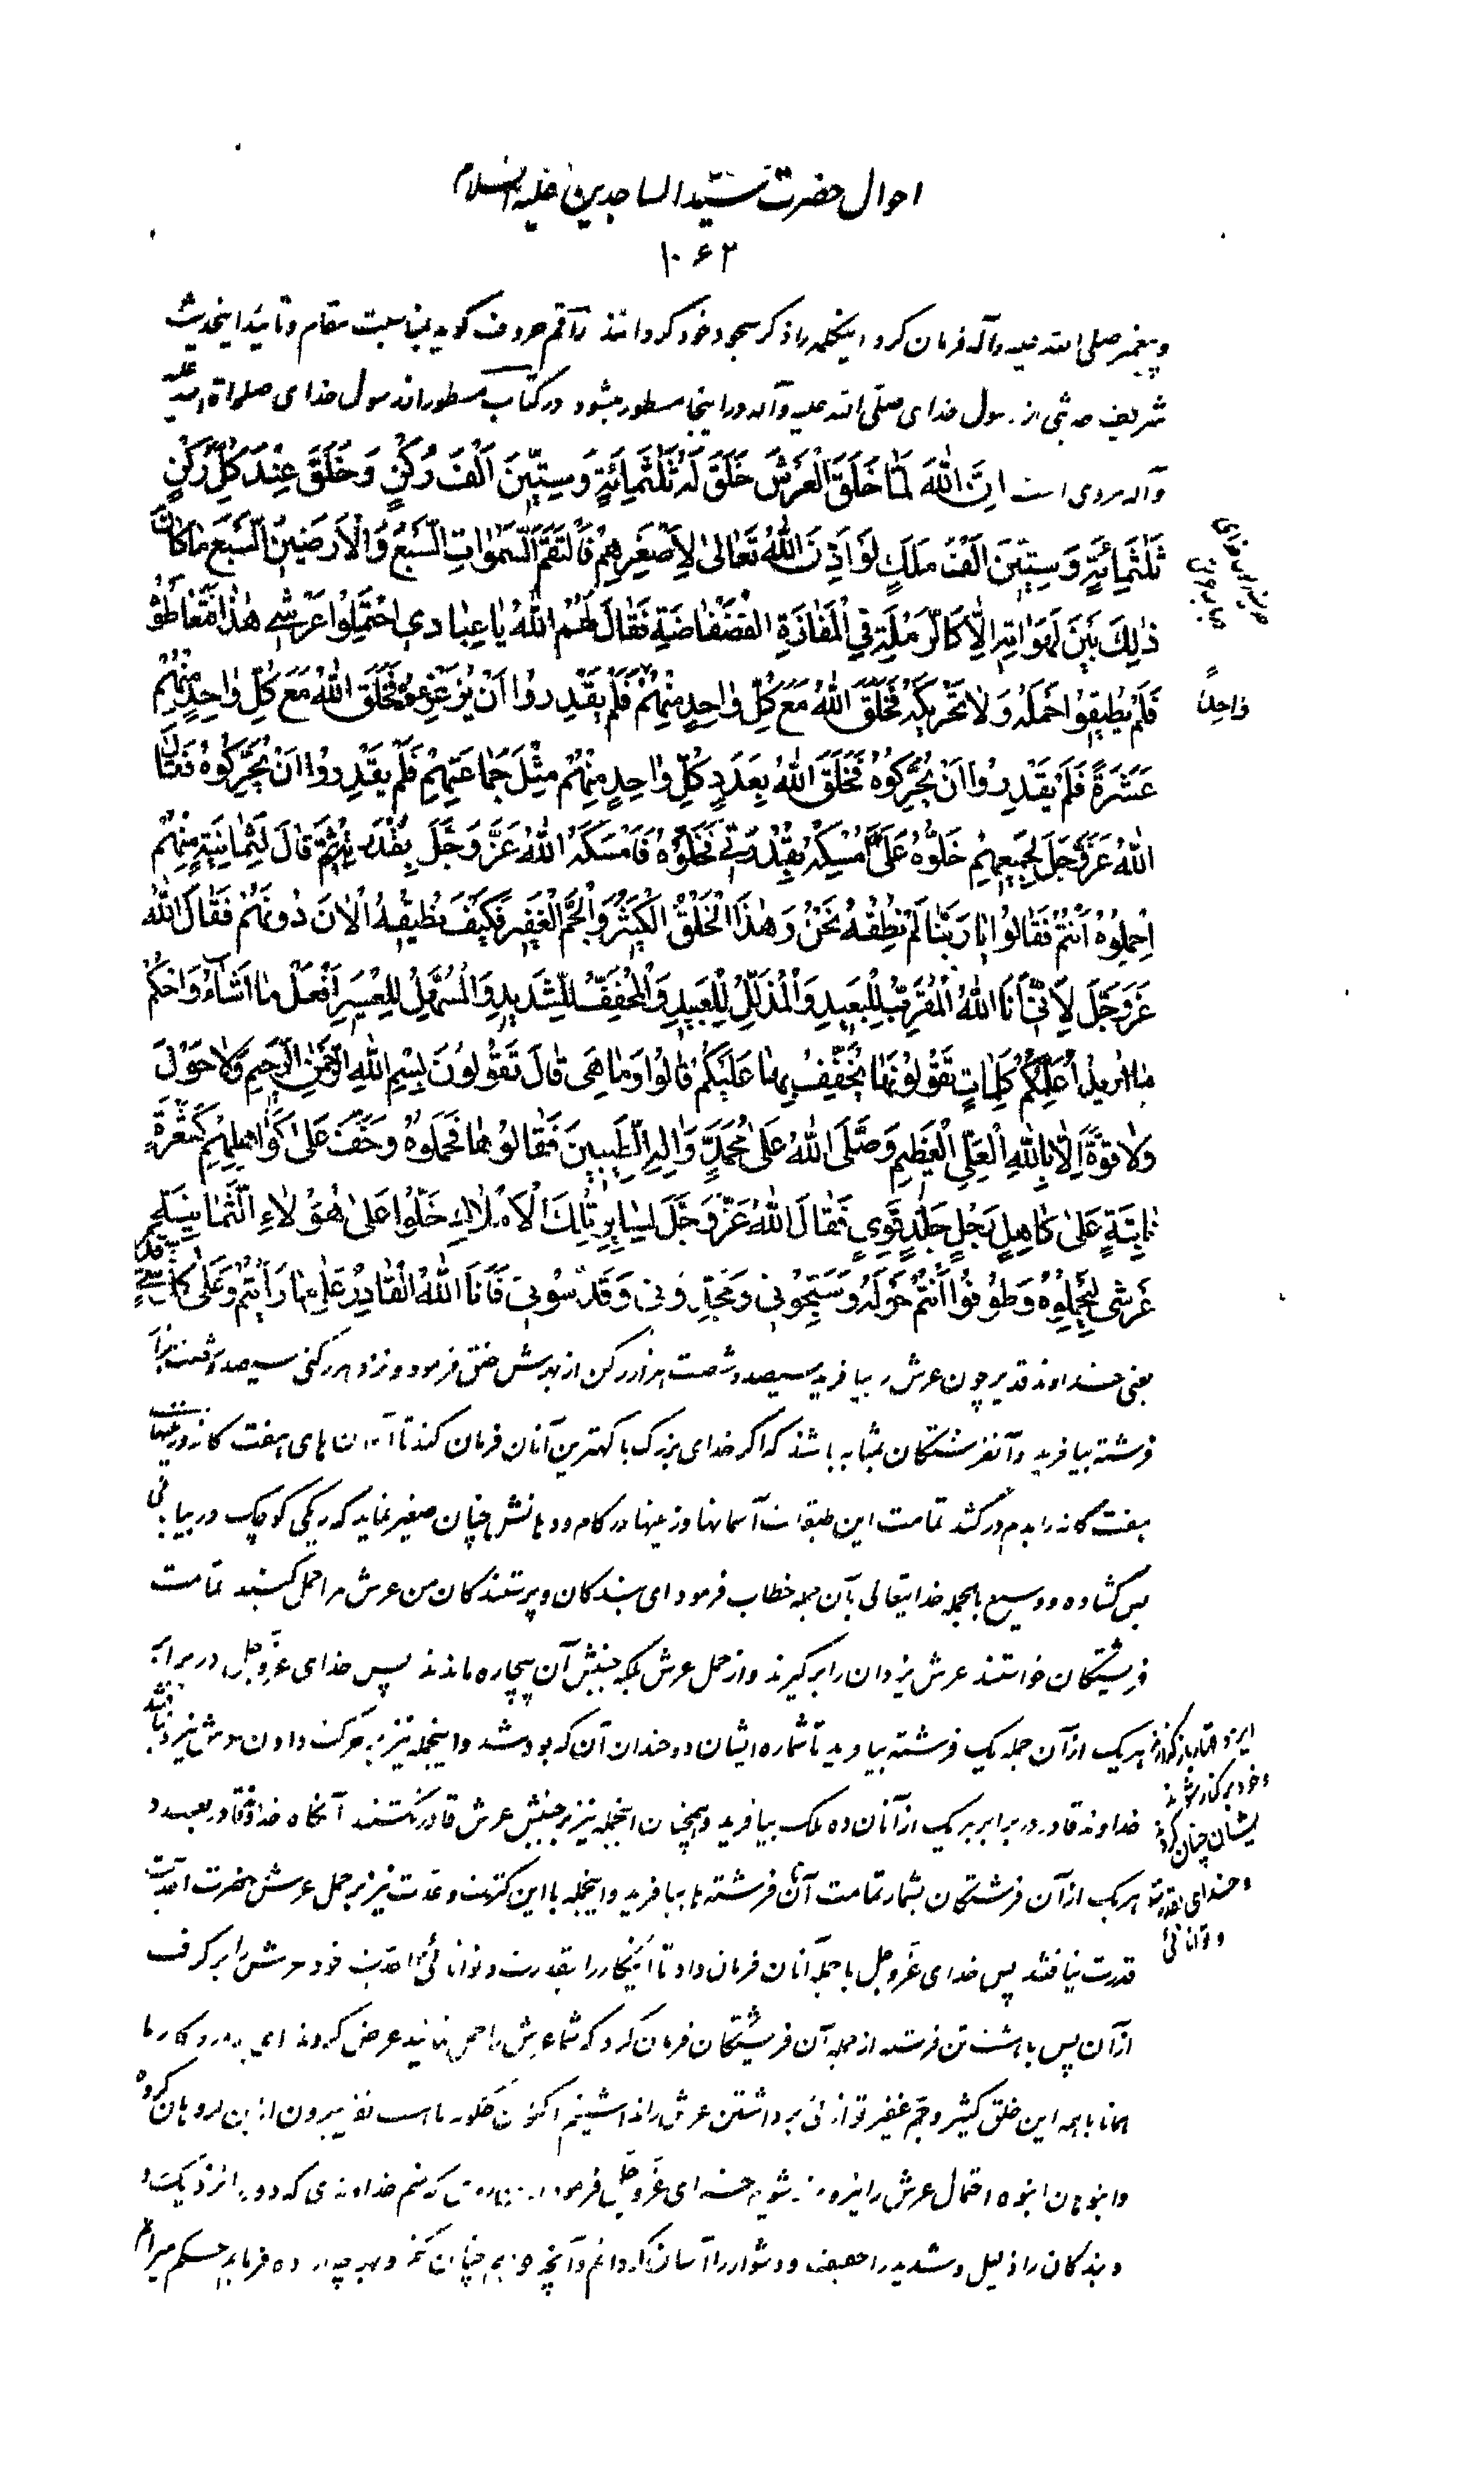 احوال حضرت سیّد الساجدین علیه السلام
۱۰۶۲
و پیغمبر صلی الله علیه وآله فرمان کرد اینکلمه را ذکر سجود خود گردانند راقم حروف گوید بمناسبت مقام و تائید اینحدیث
شریف حدیثی از رسول خدای صلّی الله علیه وآله در اینجا مسطور میشود در کتاب مسطور از رسول خدای صلواة الله علیه
وآله مروی است اِنَّ اللّٰهَ لَمّٰا خَلَقَ الْعَرْشَ خَلَقَ لَهُ ثَلٰثَمِائَةٍ وَسِتّینَ اَلْفَ رُکْنٍ وَخَلَقَ عِنْدَ کُلِّ رُکْنٍ
ثَلٰثَمِائَةٍ وَسِتّینَ اَلْفَ مَلَکٍ لَوْ اَذِنَ اللّٰهُ تَعٰالیٰ لِاَصْغَرِهِمْ فَالْتَقَمَ السَّمٰوٰاتِ السَّبْعَ وَالْاَرَضینَ السَّبْعَ مٰا کٰانَ
ذٰلِکَ بَیْنَ لَهَوٰاتِهِ اِلّٰا کَالرَّمْلَةِ فِی الْمَفٰازَةِ الْفَضْفٰاضَةِ فَقٰالَ لَهُمُ اللّٰهُ یٰا عِبٰادی اِحْتَمِلُوا عَرْشی هٰذٰا فَتَعٰاطَوْهُ
فَلَمْ یُطیقُوا حَمْلَهُ وَلٰا تَحْریکَهُ فَخَلَقَ اللّٰهُ مَعَ کُلِّ وٰاحِدٍ مِنْهُمْ فَلَمْ یَقْدِرُوا اَنْ یُزَعْزِعُوهُ فَخَلَقَ اللّٰهُ مَعَ کُلِّ وٰاحِدٍ مِنْهُمْ
وٰاحِداً
عَشَرَةً فَلَمْ یَقْدِرُوا اَنْ یُحَرِّکُوهُ فَخَلَقَ اللّٰهُ بِعَدَدِ کُلِّ وٰاحِدٍ مِنْهُمْ مِثْلَ جَمٰاعَتِهِمْ فَلَمْ یَقْدِرُوا اَنْ یُحَرِّکُوهُ فَقٰالَ
اللّٰهُ عَزَّوَجَلَّ لِجَمیعِهِمْ خَلُّوهُ عَلَیَّ اُمْسِکْهُ بِقُدْرَتی فَخَلَّوْهُ فَاَمْسَکَهُ اللّٰهُ عَزَّوَجَلَّ بِقُدْرَتِهِ ثُمَّ قٰالَ لِثَمٰانِیَةٍ مِنْهُمْ
اِحْمِلُوهُ اَنْتُمْ فَقٰالُوا یٰا رَبَّنٰا لَمْ نُطِقْهُ نَحْنُ وَهٰذَا الْخَلْقُ الْکَثیرُ وَالْجَمُّ الْغَفیرُ فَکَیْفَ نُطیقُهُ الْاٰنَ دُونَهُمْ فَقٰالَ اللّٰهُ
عَزَّوَجَلَّ لِاَنّی اَنَا اللّٰهُ الْمُقَرِّبُ لِلْبَعیدِ وَالْمُذَلِّلُ لِلْعَبیدِ وَالْمُخَفِّفُ لِلشَّدیدِ وَالْمُسَهِّلُ لِلْعَسیرِ اَفْعَلُ مٰا اَشٰآءُ وَاَحْکُمُ
مٰا اُریدُ اُعَلِّمُکُمْ کَلِمٰاتٍ تَقُولُونَهٰا یُخَفَّفُ بِهٰا عَلَیْکُمْ قٰالُوا وَمٰا هِیَ قٰالَ تَقُولُونَ بِسْمِ اللّٰهِ الرَّحْمٰنِ الرَّحیمِ وَلٰا حَوْلَ
وَلٰا قُوَّةَ اِلّٰا بِاللّٰهِ الْعَلِیِّ الْعَظیمِ وَصَلَّی اللّٰهُ عَلیٰ مُحَمَّدٍ وَاٰلِهِ الطَّیِّبینَ فَقٰالُوهٰا فَحَمَلُوهُ وَخَفَّ عَلیٰ کَوٰاهِلِهِمْ کَشَعْرَةٍ
نٰابِتَةٍ عَلیٰ کٰاهِلِ رَجُلٍ جَلْدٍ قَوِیٍّ فَقٰالَ اللّٰهُ عَزَّوَجَلَّ لِسٰایِرِ تِلْکَ الْاَمْلٰاکِ خَلُّوا عَلیٰ هٰؤُلٰاءِ الثَّمٰانِیَةِ
عَرْشی لِیَحْمِلُوهُ وَطُوفُوا اَنْتُمْ حَوْلَهُ وَسَبِّحُونی وَمَجِّدُونی وَقَدِّسُونی فَاَنَا اللّٰهُ الْقٰادِرُ عَلیٰ مٰا رَاَیْتُمْ وَعَلیٰ کُلِّ شَیْءٍ قَدیرٌ
یعنی خداوند قدیر چون عرش را بیافرید سیصد و شصت هزار رکن از بهرش خلق فرمود و نزد هر رکنی سیصد و شصت هزار
فرشته بیافرید و آنفرشتگان بمثابه باشند که اگر خدای بزرگ با کهترین آنان فرمان کند تا آسمان های هفت گانه و زمینهای
هفت گانه را بدم در کشد تمامت این طبقات آسمانها و زمینها در کام و دهانش چنان صغیر نماید که ریگی کوچک در بیابانی
بس گشاده و وسیع بالجمله خدایتعالی با آن جمله خطاب فرمود ای بندگان و پرستندگان من عرش مرا حمل کنید تمامت
فریشتگان خواستند عرش یزدان را برگیرند و از حمل عرش بلکه جنبش آن بیچاره ماندند پس خدای عزّوجل در برابر
هر یک از آن جمله یک فرشته بیافرید تا شماره ایشان دو چندان آن که بود شد و اینجمله نیز به حرکت دادن عرش نیرو نیافتند
خداوند قادر در برابر هر یک از آنان ده ملک بیافرید و همچنان اینجمله نیز بر جنبش عرش قادر نگشتند آنگاه خداوند قادر بعدد
هر یک از آن فرشتگان بشمار تمامت آنان فرشته ها بیافرید و اینجمله با این کثرت و عدت نیز بر حمل عرش حضرت احدیت
قدرت نیافتند پس خدای عزّوجل با جمله آنان فرمان داد تا اینکار را بقدرت و توانائی احدیت خود عرش را برگرفت
ازآن پس با هشت تن فرشته از جمله آن فریشتگان فرمان کرد که شما عرش را حمل نمایید عرض کردند ای پروردگار ما
همانا با همه این خلق کثیر و جمّ غفیر توانائی برداشتن عرش را نداشتیم اکنون چگونه ما هشت نفر بیرون از این گروهان گروه
و انبوهان انبوه احتمال عرش را نیرومند شویم خدای عزّوجلّ فرمود که منم خداوندی که دور را نزدیک و
و بندگان را ذلیل و شدید را خفیف و دشوار را آسان گردانم و آنچه خواهم چنان کنم و بهر چه اراده فرمایم حکم میرانم